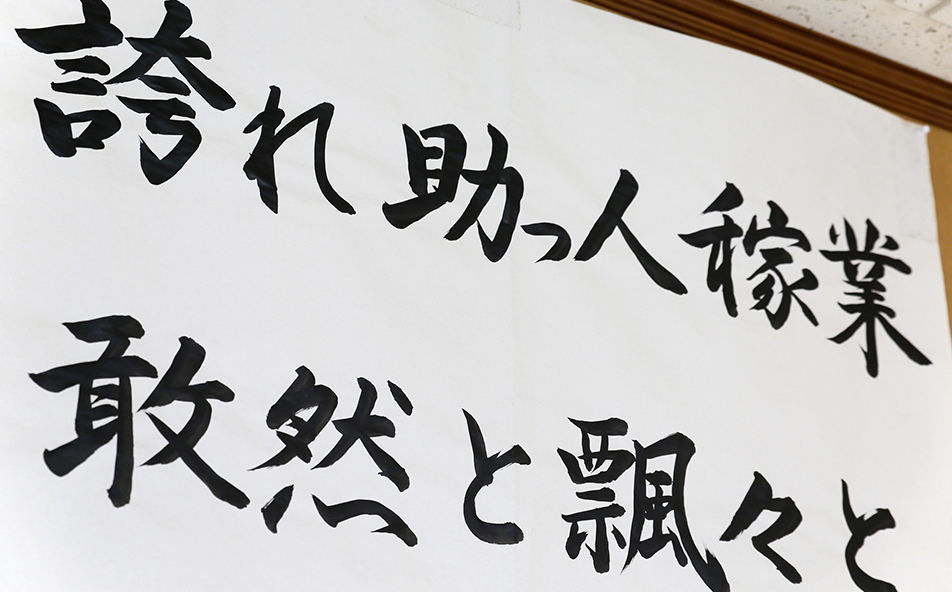 誇れ助っ人稼業
敢然と飄々と